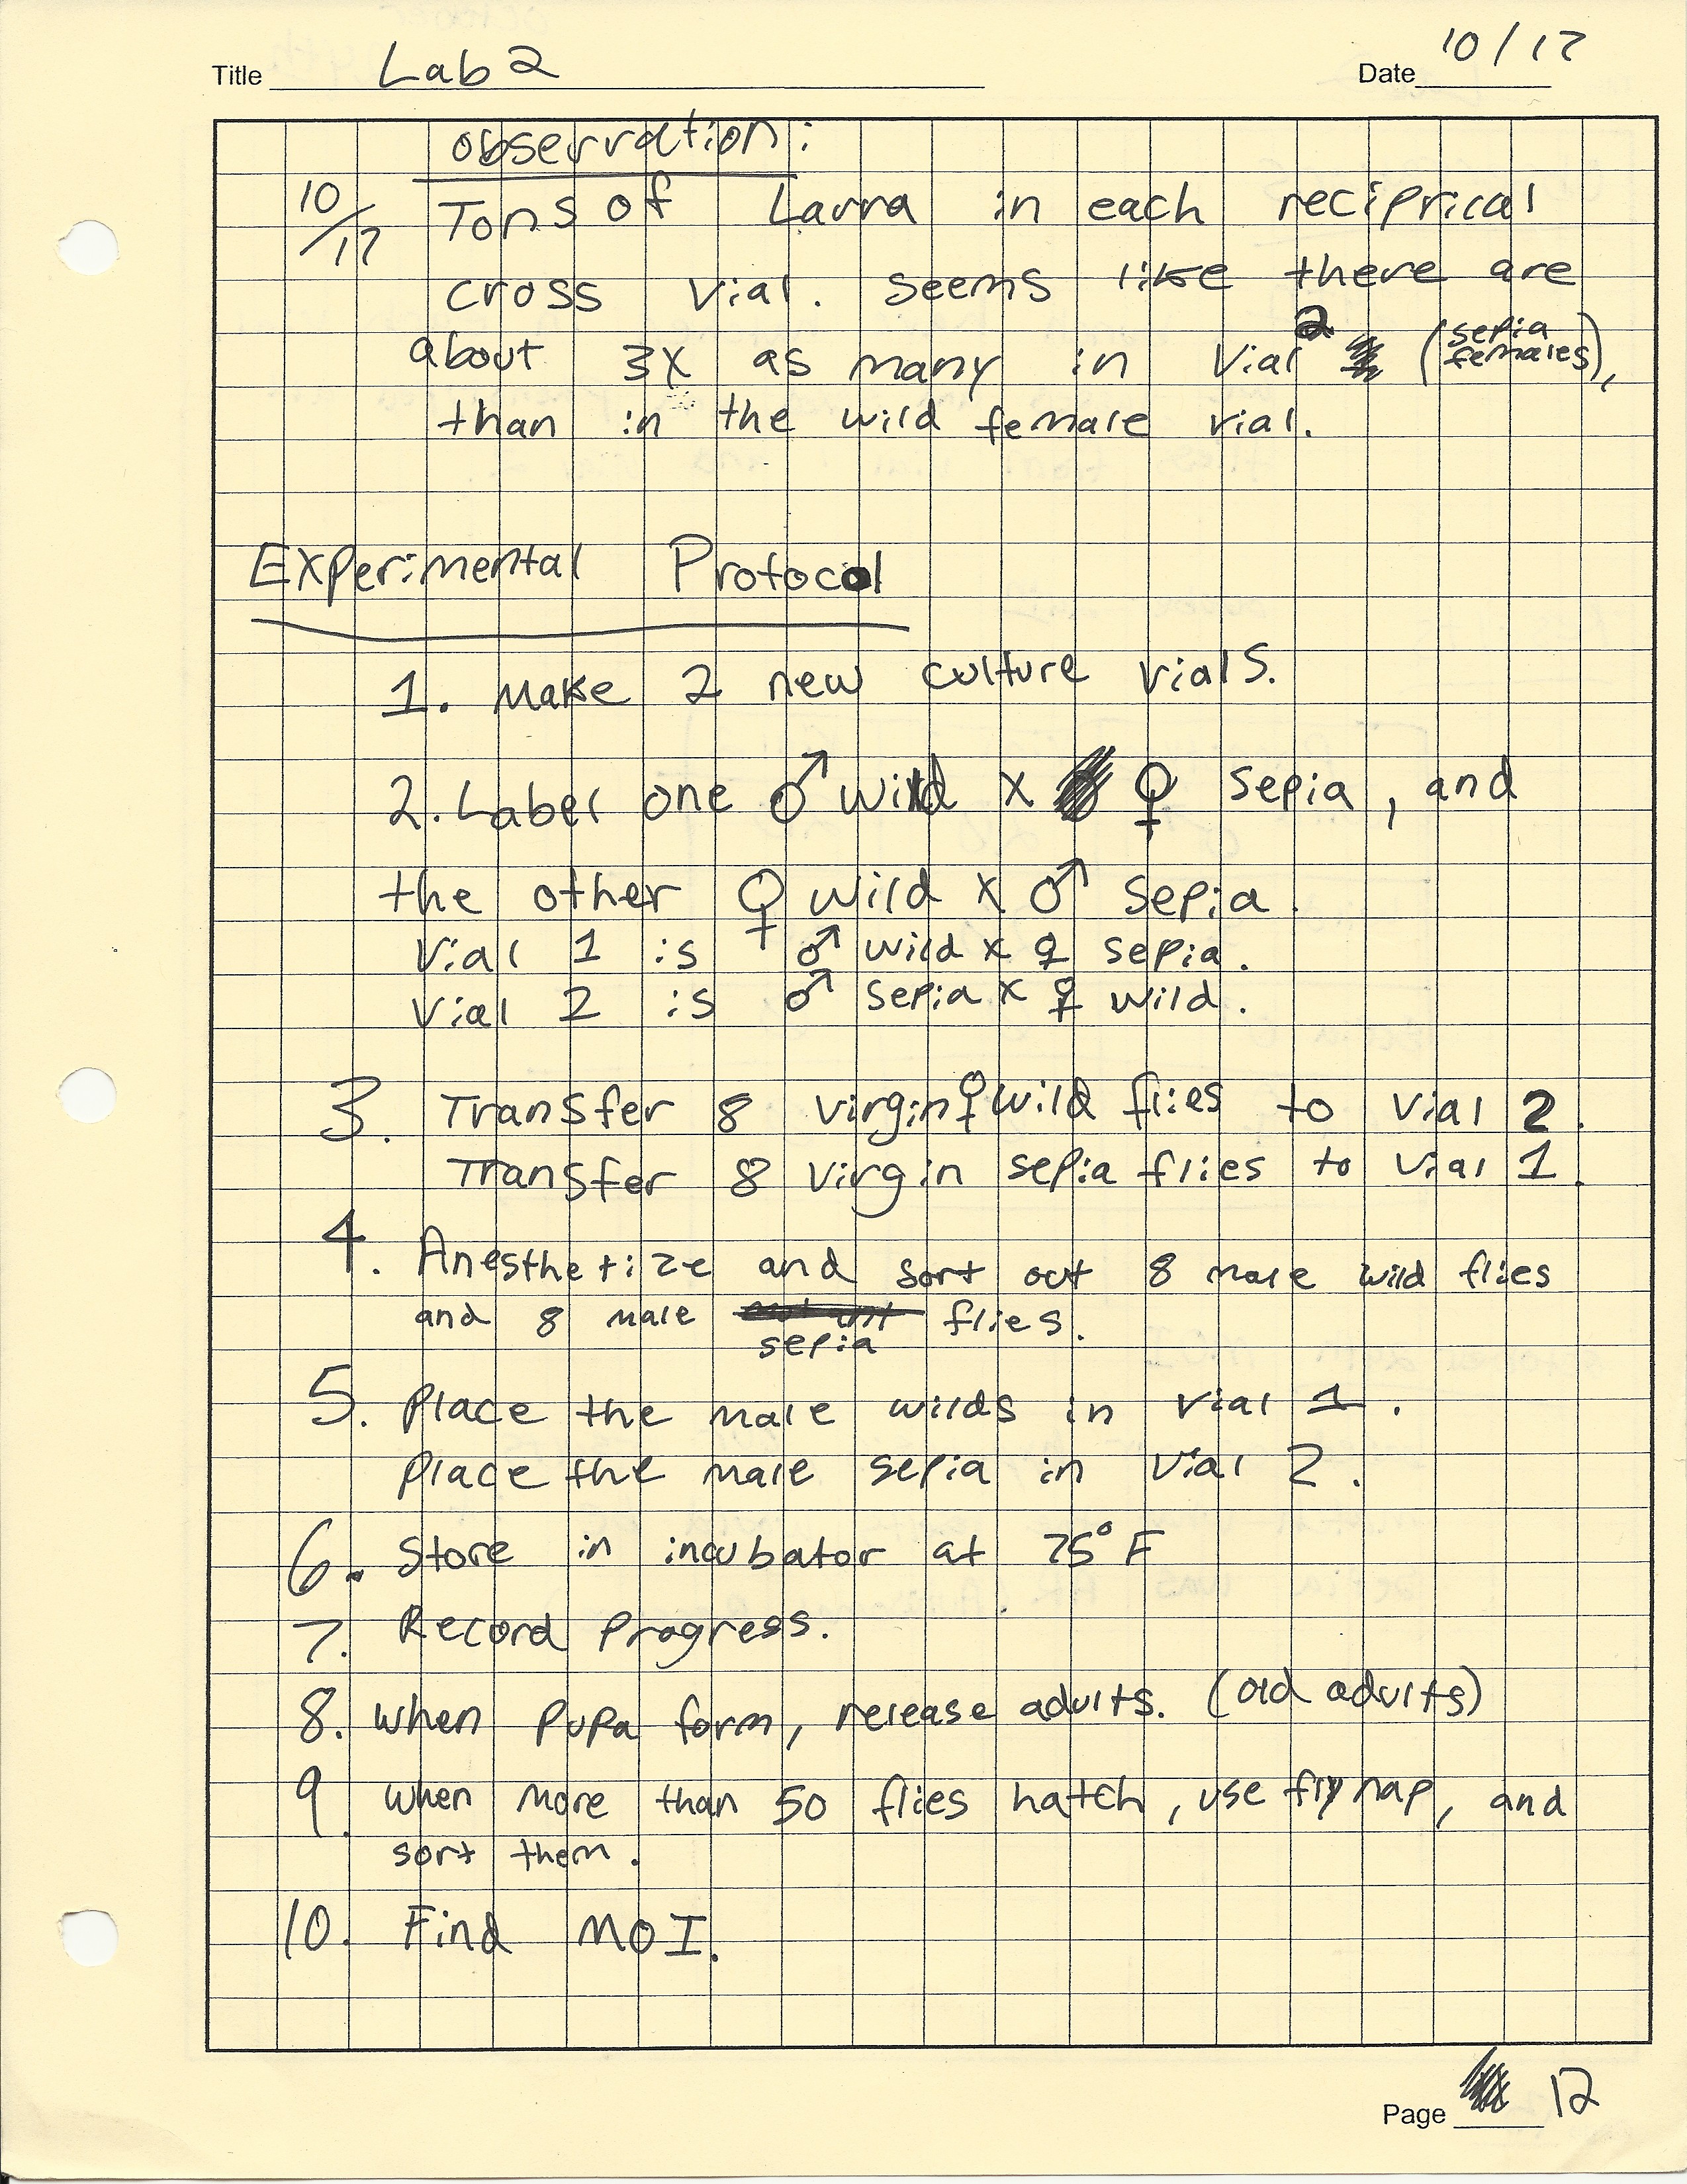 Title Lab 2
Date 10/17
observation:
10/17 Tons of Larva in each reciprical
cross vial. seems like there are
about 3X as many in Vial 2 (sepia females),
than in the wild female vial.
Experimental Protocol
1. Make 2 new culture vials.
2. Label one ♂ wild x ♀ sepia, and
the other ♀ wild x ♂ sepia.
Vial 1 is ♂ wild x ♀ sepia.
Vial 2 is ♂ sepia x ♀ wild.
3. Transfer 8 virgin ♀ wild flies to vial 2.
Transfer 8 virgin sepia flies to vial 1.
4. Anesthetize and sort out 8 male wild flies
and 8 male mutant flies.
sepia
5. Place the male wilds in vial 1.
Place the male sepia in vial 2.
6. Store in incubator at 75° F
7. Record Progress.
8. when pupa form, release adults. (old adults)
9. when more than 50 flies hatch, use fly nap, and
sort them.
10. Find MOI.
Page 12